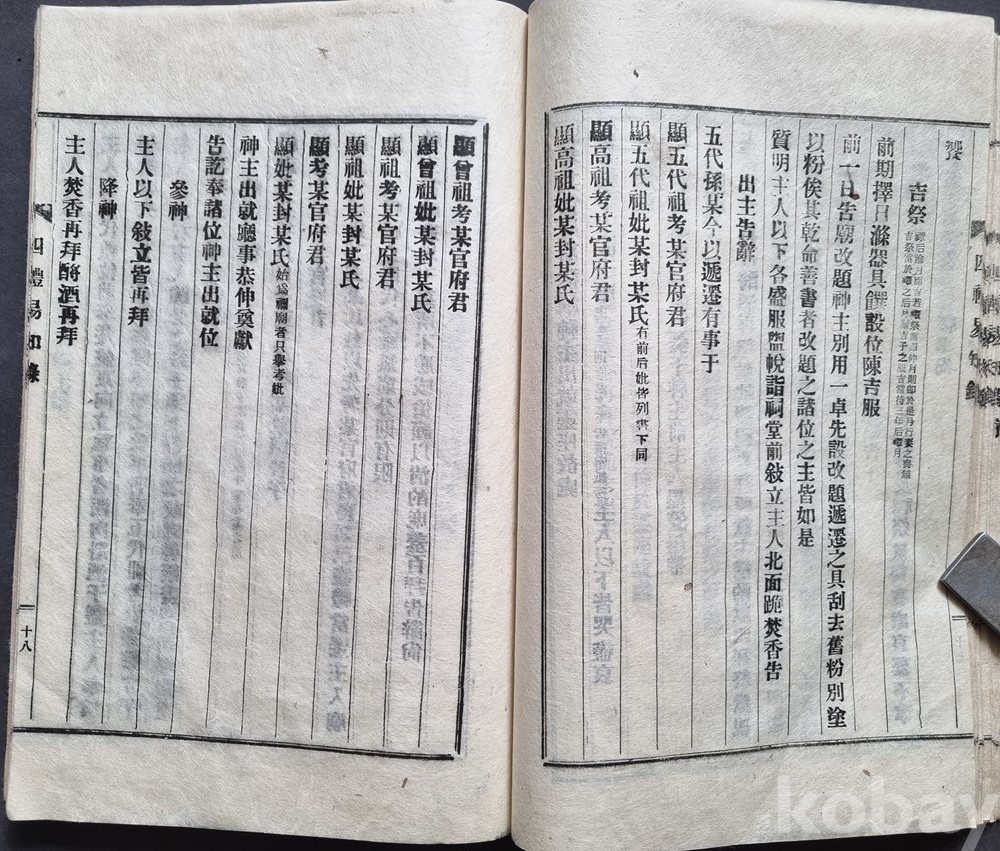 饗
吉祭
前期擇日滌器具饌設位陳吉服
前一日告廟改題神主別用一卓先設改題遞遷之具刮去舊粉別塗
以粉俟其乾命善書者改題之諸位之主皆如是
質明主人以下各盛服盥帨詣祠堂前敍立主人北面跪焚香告
出主告辭
五代孫某今以遞遷有事于
顯五代祖考某官府君
顯五代祖妣某封某氏有前后妣皆列書下同
顯高祖考某官府君
顯高祖妣某封某氏
顯曾祖考某官府君
顯曾祖妣某封某氏
顯祖考某官府君
顯祖妣某封某氏
顯考某官府君
顯妣某封某氏始爲禰廟者只擧考妣
神主出就廳事恭伸奠獻
告訖奉諸位神主出就位
參神
主人以下敍立皆再拜
降神
主人焚香再拜酹酒再拜
四禮易知錄
十八
kobay